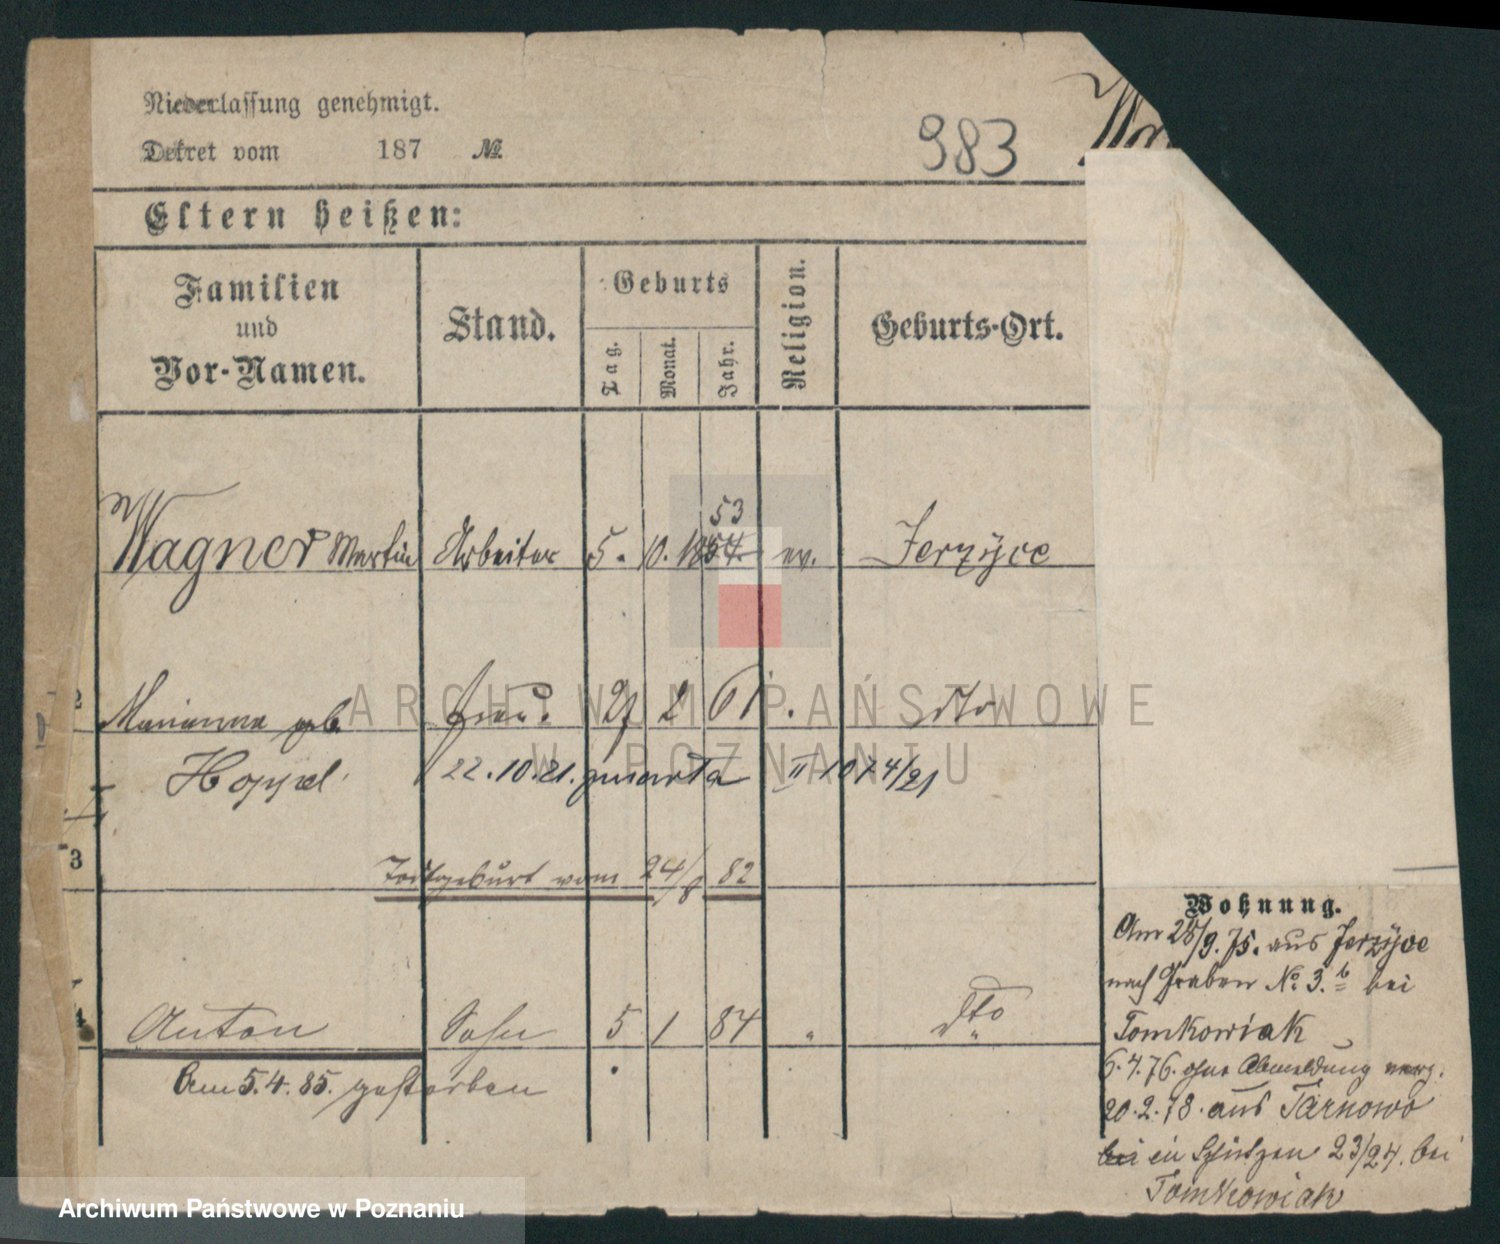 Niederlassung genehmigt.
Dekret vom 187 №
983
Eltern heißen:
Familien und Vor-Namen.
Stand.
Geburts
Tag.
Monat.
Jahr.
Religion.
Geburts-Ort.
53
Wagner Martin Arbeiter 5. 10. 1854 ev. Jerzyce
2 Marianna geb. Frau. 2 61 . dto
Hoppel 22.10.21. zmarła II 1074/21
3 Todtgeburt vom 24/8 82
4 Anton Sohn 5 1 84 " dto
Am 5.4.85. gestorben
Wohnung.
Am 28/9.75. aus Jerzyce
nach Graben № 3.b bei
Tomkowiak
6.4.76. ohne Abmeldung verz.
20.2.78. aus Tarnowo
bei in Schützen 23/24. bei
Tomkowiak
ARCHIWUM PAŃSTWOWE
W POZNANIU
Archiwum Państwowe w Poznaniu